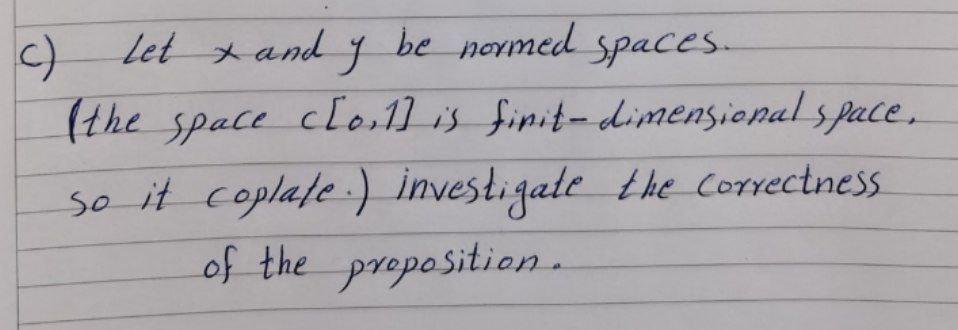 c) Let x and y be normed spaces.
(the space c[0,1] is finit-dimensional space,
so it coplate.) investigate the correctness
of the proposition.